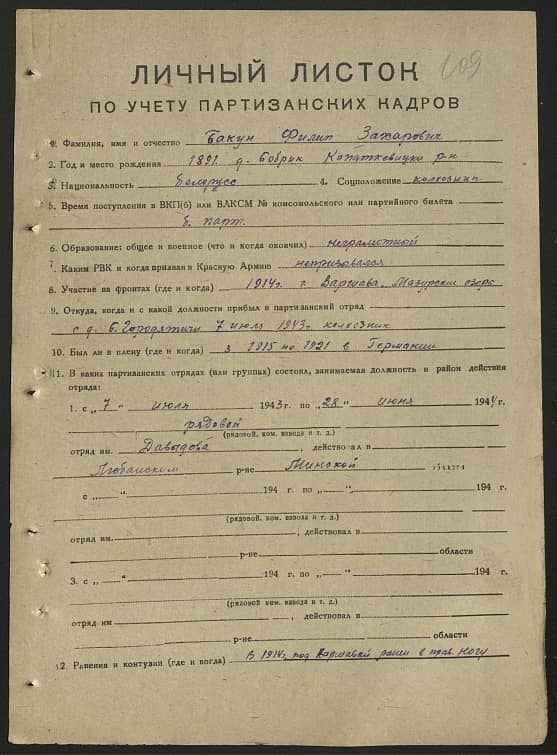 109
ЛИЧНЫЙ ЛИСТОК
ПО УЧЕТУ ПАРТИЗАНСКИХ КАДРОВ
Фамилия, имя и отчество Бакун Филип Захарович
2. Год и место рождения 1891 д. Бобрик Копаткевицко р-н
3. Национальность Белорусс 4. Соцположение колхозник
5. Время поступления в ВКП(б) или ВЛКСМ № комсомольского или партийного билета
б. парт.
6. Образование: общее и военное (что и когда окончил) неграмотной
7. Каким РВК и когда призван в Красную Армию непризовался
8. Участие на фронтах (где и когда) 1914г. г. Варшава, Мазурски озера
9. Откуда, когда и с какой должности прибыл в партизанский отряд
с д. б. Городятичи 7 июля 1943г. колхозник
10. Был ли в плену (где и когда) з 1915 по 1921 в Германии
11. В каких партизанских отрядах (или группах) состоял, занимаемая должность и район действия
отряда:
1. с „7" июля 1943 г. по „28" июня 1944 г.
рядовой
(рядовой, ком. взвода и т. д.)
отряд им. Давыдова, действовал в
Любанском р-не Минской области
с „ " 194 г. по „ " 194 г.
(рядовой, ком. взвода и т. д.)
отряд им. , действовал в
р-не области
3. с „ " 194 г. по „ " 194 г.
(рядовой, ком. взвода и т. д.)
отряд им. , действовал в
р-не области
2. Ранения и контузии (где и когда) В 1914г. под Варшавой ранен в прав. ногу